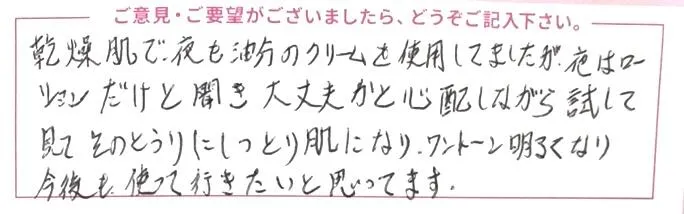 ご意見・ご要望がございましたら、どうぞご記入下さい。
乾燥肌で、夜も油分のクリームを使用してましたが、夜はロー
ションだけと聞き大丈夫かと心配しながら試して
見て そのとうりにしっとり肌になり、ワントーン明るくなり
今後も使って行きたいと思ってます。